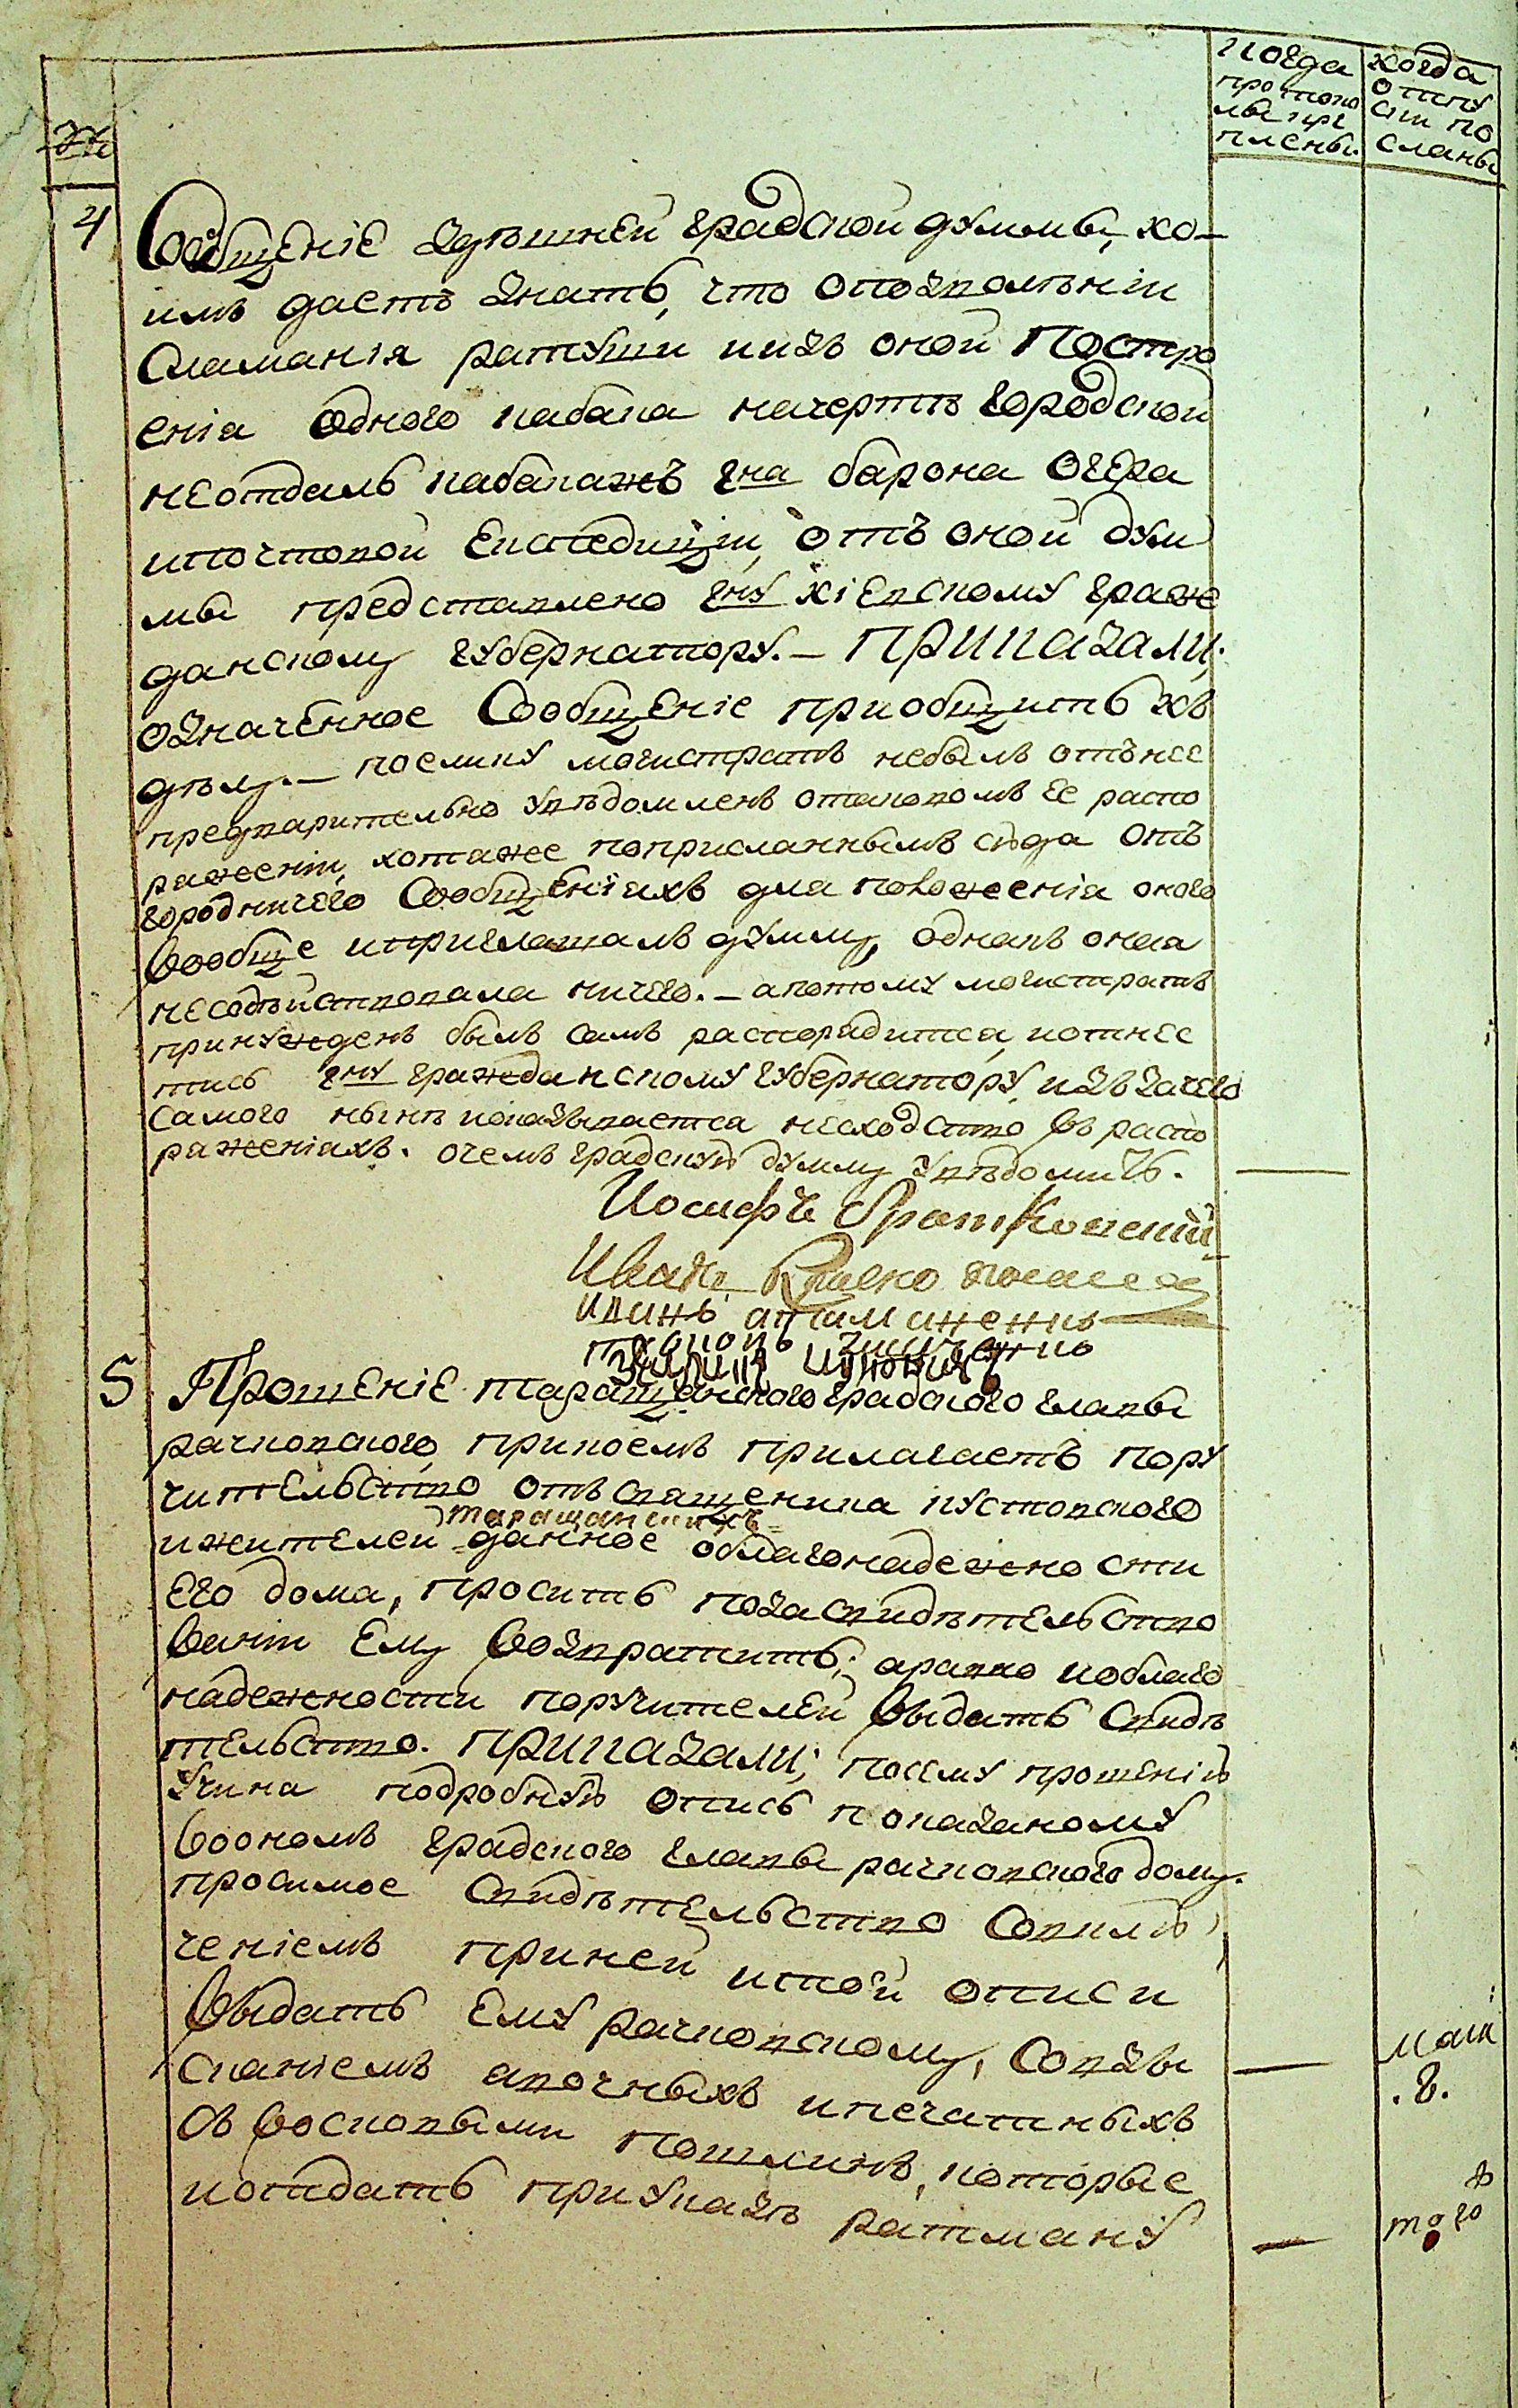 №
когда протоко лы кре плены.
когда отпу ски по сланы
4
Сообщеніе здѣшней градской думмы, ко-
имъ даетъ знать, что опозволѣніи
сламанія ратуши иизъ оной Постро
енія одного кабака начертѣ городской
неотдалъ кабакажъ гна барона Огера
ипочтовой Експедиціи, отъ оной дум
мы представлено гну Кіевскому граж
данскому губернатору. — ПРИКАЗАЛИ;
означенное Сообщеніе приобщить къ
дѣлу. — поелику магистратъ небылъ отънее
предварительно увѣдомленъ отаковомъ ее распо
раженіи, хотажее поприсланнымъ сюда отъ
городничего Сообщеніахъ для положенія оного
вообще иприглашалъ думму, однакъ оная
несодѣйствовала ничего. — апотому магистратъ
принужденъ былъ самъ распорядится, иотнес
тись гну гражданскому губернатору, изъ зачего
самого нынѣ показывается несходство въ распо
раженіахъ. очемъ градскую думму увѣдомить.
Иосифъ
Иванъ
иванъ
5
Прошеніе таращанского градского главы
рачковского, прикоемъ прилагаетъ пору
чительство отъ священика пустовского
таращанскихъ
ижителей данное облагонадежности
его дома, проситъ позасвидѣтельство
ваніи Ему возвратить; аравно иоблаго
надежности поручителей выдать свидѣ
тельство. ПРИКАЗАЛИ; посему прошенію
учиня подробную опись показаному
воономъ градского главы рачковского дому.
просимое свидѣтельство совклю
ченіемъ приней итой описи
выдать Ему рачковскому, совзы
сканіемъ акочныхъ ипечатныхъ
съ восковыми пошлинъ, которые
иотдать приуказѣ ратману
маія
.8.
того